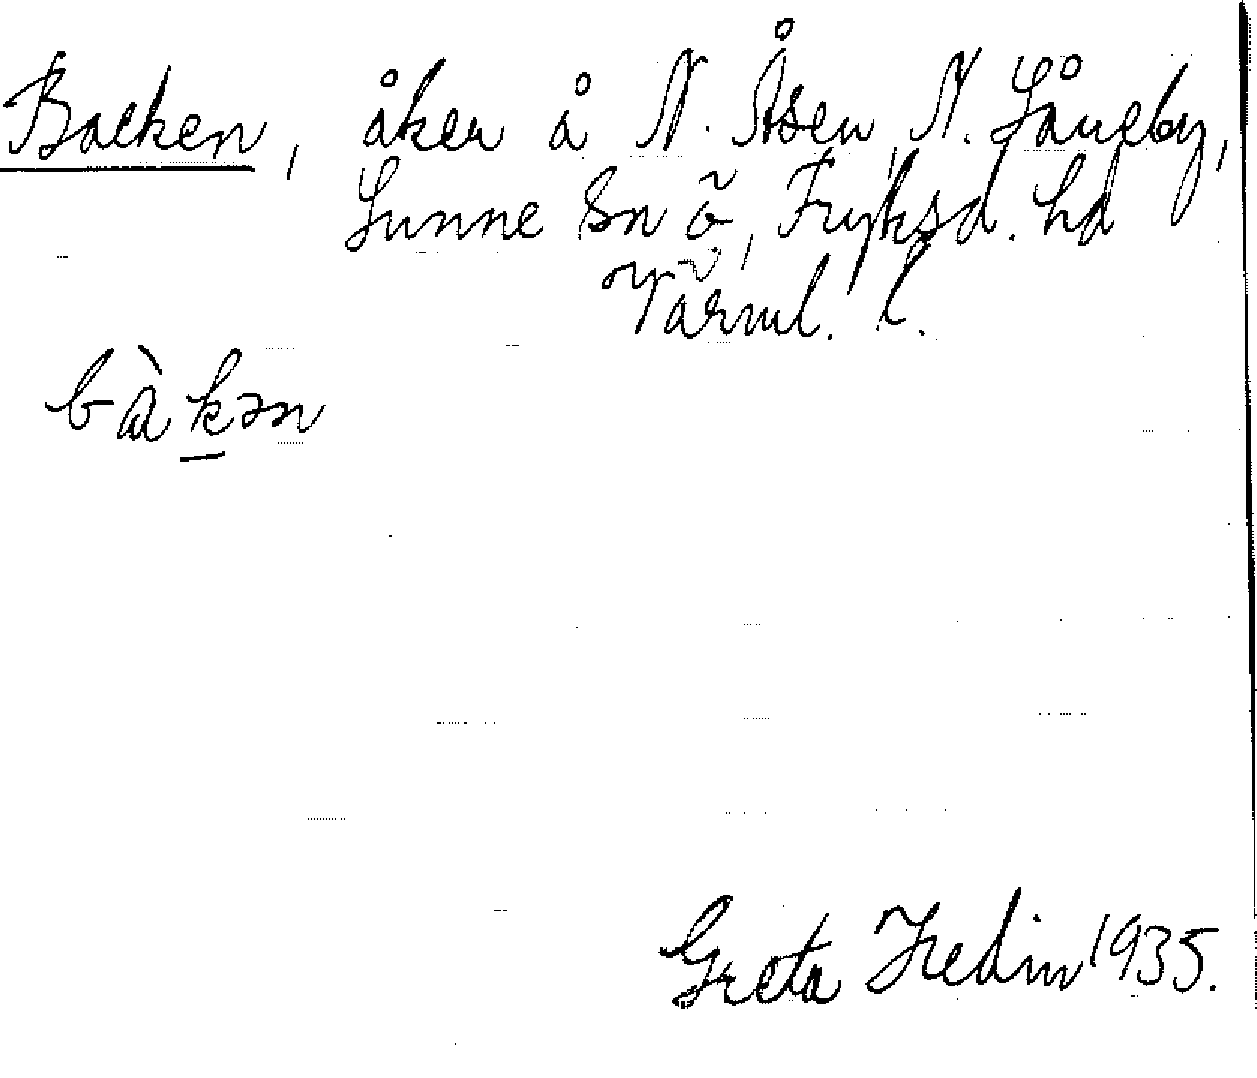 Backen, åker å N. Åsen, N. Långby,
Sunne Sn ö, Fryksd. hd
Värml. l.
bàkən
Greta Hedin 1935.